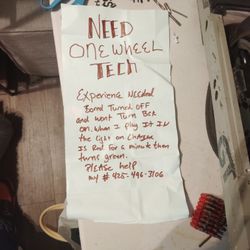 NEED
ONEWHEEL
TECH
Experience Needed
Bord Turned OFF
and wont Turn Bck
ON. When I plug It IN
the light on Charger
Is Red For a minute then
turns green.
PLEASE help
my # 925-496-3106